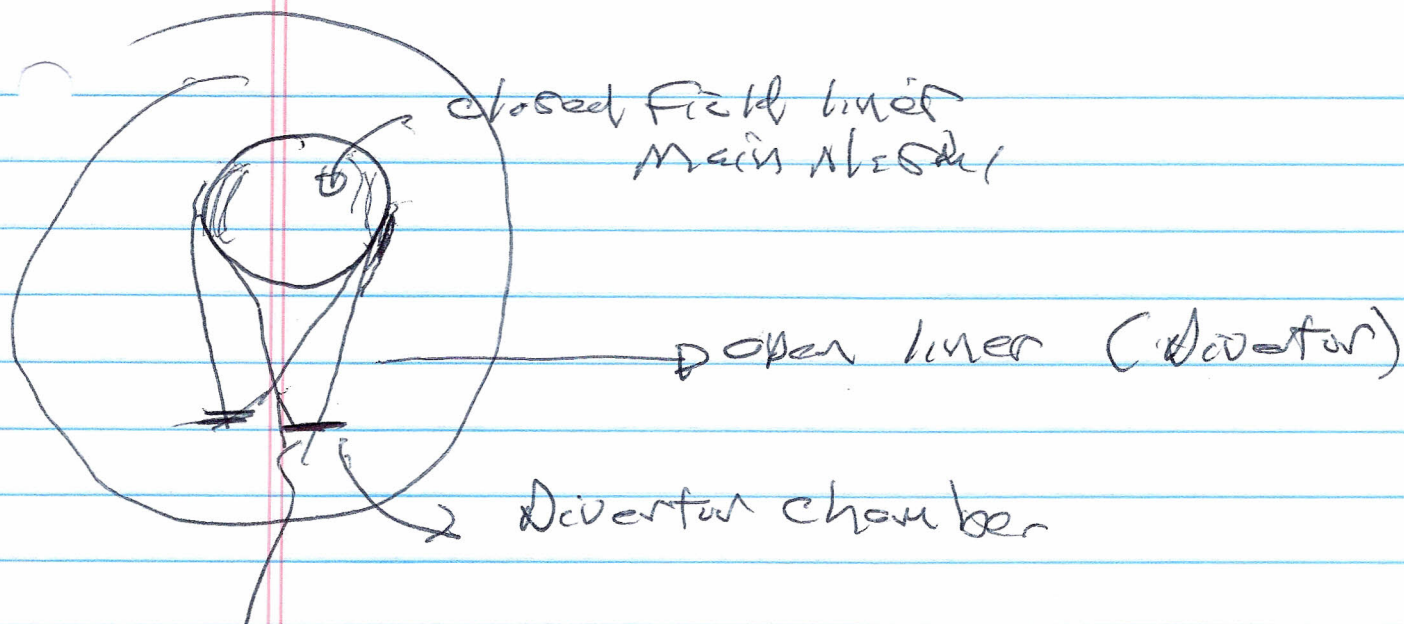 closed field lines
Main plasma
open lines (Divertor)
Divertor chamber